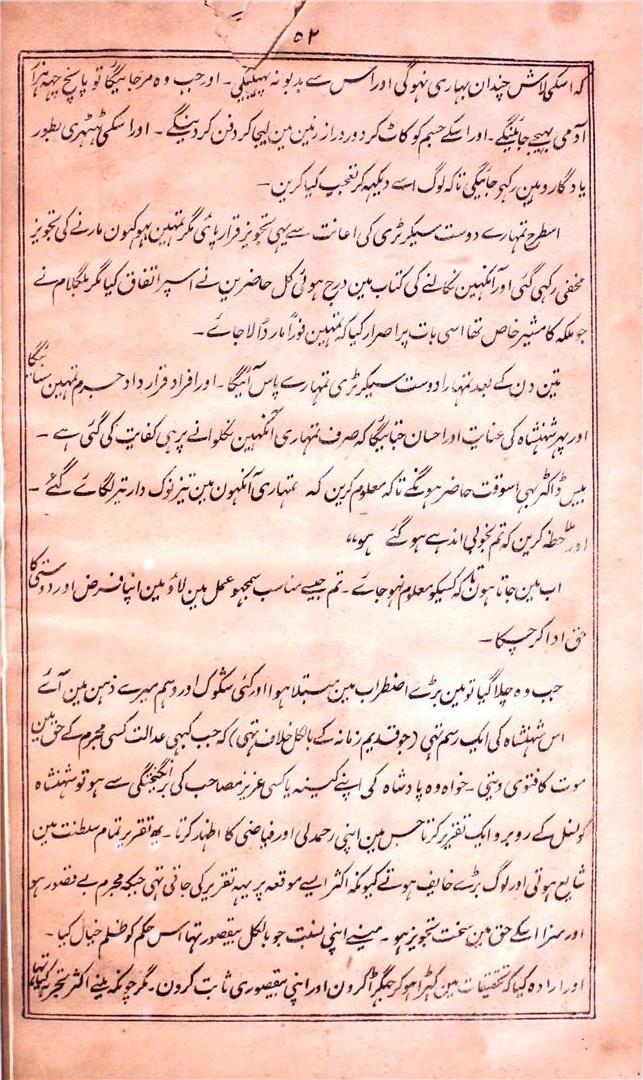 ۵۲
کہ اسکی لاش چندان بہاری نہوگی اور اس سے بدبو نہ پہیلیگی۔ اور جب وہ مرجائیگا تو پانچ چہہ ہزار
آدمی بہیجے جائینگے۔ اور اسکے جسم کو کاٹ کر دور دراز زمین مین لیجا کر دفن کر دینگے۔ اور اسکی ٹہٹہری بطور
یادگار وہین رکہی جائیگی تاکہ لوگ اسے دیکہہ کر تعجب کیا کرین۔
اسطرح تمہارے دوست سیکرٹری کی اعانت سے یہی تجویز قرار پائی مگر تمہین بہوکہون مارنے کی تجویز
مخفی رکہی گئی اور آنکہین نکالنے کی کتاب مین درج ہوئی کل حاضرین نے اسپر اتفاق کیا مگر بلگلام نے
جو ملکہ کا مشیر خاص تہا اسی بات پر اصرار کیا کہ تمہین فوراً مار ڈالا جائے۔
تین دن کے بعد تمہارا دوست سیکرٹری تمہارے پاس آئیگا۔ اور افراد قرارداد جرم تمہین سنائیگا
اور پہر شہنشاہ کی عنایت اور احسان جتائیگا کہ صرف تمہاری آنکہین نکلوانے پر ہی کفایت کی گئی ہے۔
بیس ڈاکٹر بہی اسوقت حاضر ہونگے تاکہ معلوم کرین کہ تمہاری آنکہون مین تیز نوک دار تیر لگائے گئے۔
اور ملاحظہ کرین کہ تم بخوبی اندہے ہوگئے ہو،،
اب مین جاتا ہون تاکہ کسیکو معلوم نہوجائے۔ تم جیسے مناسب سمجہو عمل مین لاؤ مین اپنا فرض اور دوستی کا
حق ادا کرچکا۔
جب وہ چلا گیا تو مین بڑے اضطراب مین مبتلا ہوا اور کئی شکوک اور وہم میرے ذہن مین آئے
اس شہنشاہ کی ایک رسم تہی (جو قدیم زمانہ کے بالکل خلاف تہی) کہ جب کبہی عدالت کسی مجرم کے حق مین
موت کا فتویٰ دیتی۔ خواہ وہ پادشاہ کی اپنے کینہ یا کسی عزیز مصاحب کی برانگیختگی سے ہو تو شہنشاہ
کونسل کے روبرو ایک تقریر کرتا جس مین اپنی رحمدلی اور فیاضی کا اظہار کرتا۔ یہہ تقریر تمام سلطنت مین
شایع ہوتی اور لوگ بڑے خایف ہوتے کیونکہ اکثر ایسے موقعہ پر یہہ تقریر کی جاتی تہی جبکہ مجرم بے قصور ہو
اور سزا اسکے حق مین سخت تجویز ہو۔ مینے اپنی نسبت جو بالکل بیقصور تہا اس حکم کو ظلم خیال کیا۔
اور ارادہ کیا کہ تحقیقات مین کہڑا ہوکر جہگڑا کرون اور اپنی بیقصوری ثابت کرون۔ مگر چونکہ مینے اکثر تجربہ کیا تہا